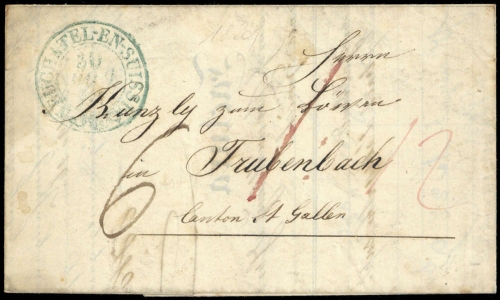 NEUCHATEL-EN-SUISSE
30
Herrn
Kunzly zum Löwen
in Trubenbach
Canton St Gallen
6
12